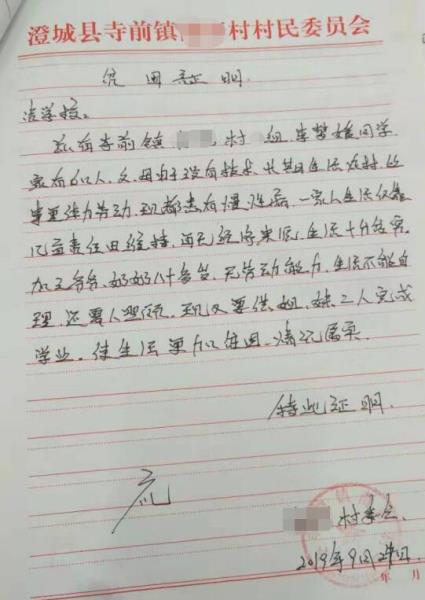 澄城县寺前镇 村村民委员会
贫困证明
贵学校:
兹有寺前镇 村 组 李 同学
家有6口人, 父母由于没有技术, 长期生活农村, 从
事重体力劳动, 现都患有慢性病, 一家人生活仅靠
几亩责任田维持, 再无经济来源, 生活十分贫穷。
加之爷爷、奶奶八十多岁, 无劳动能力, 生活不能自
理, 还需人照顾, 现又要供姐、妹二人完成
学业, 使生活更加贫困, 情况属实。
特此证明.
村委会.
2019年9月24日.
年 月